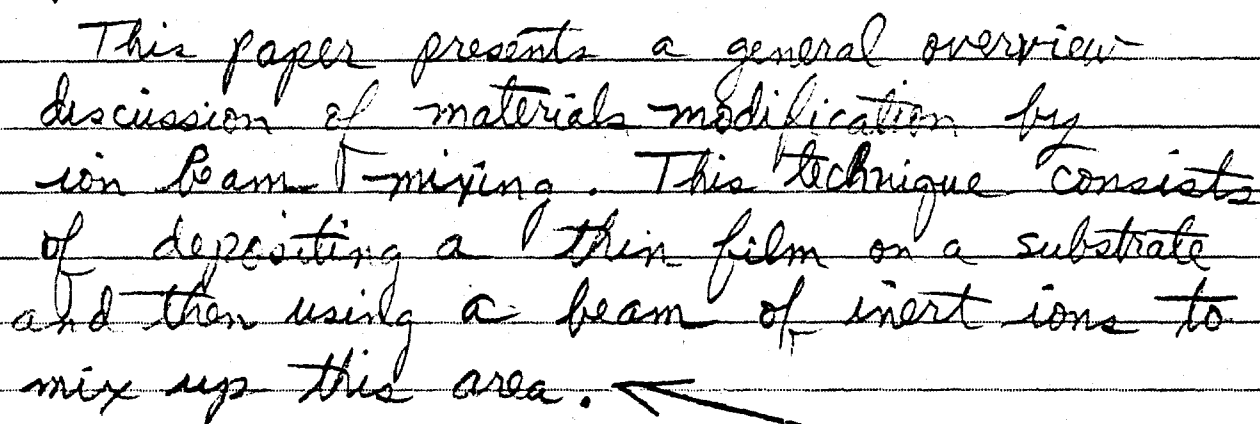 This paper presents a general overview
discussion of materials modification by
ion beam mixing. This technique consists
of depositing a thin film on a substrate
and then using a beam of inert ions to
mix up this area.